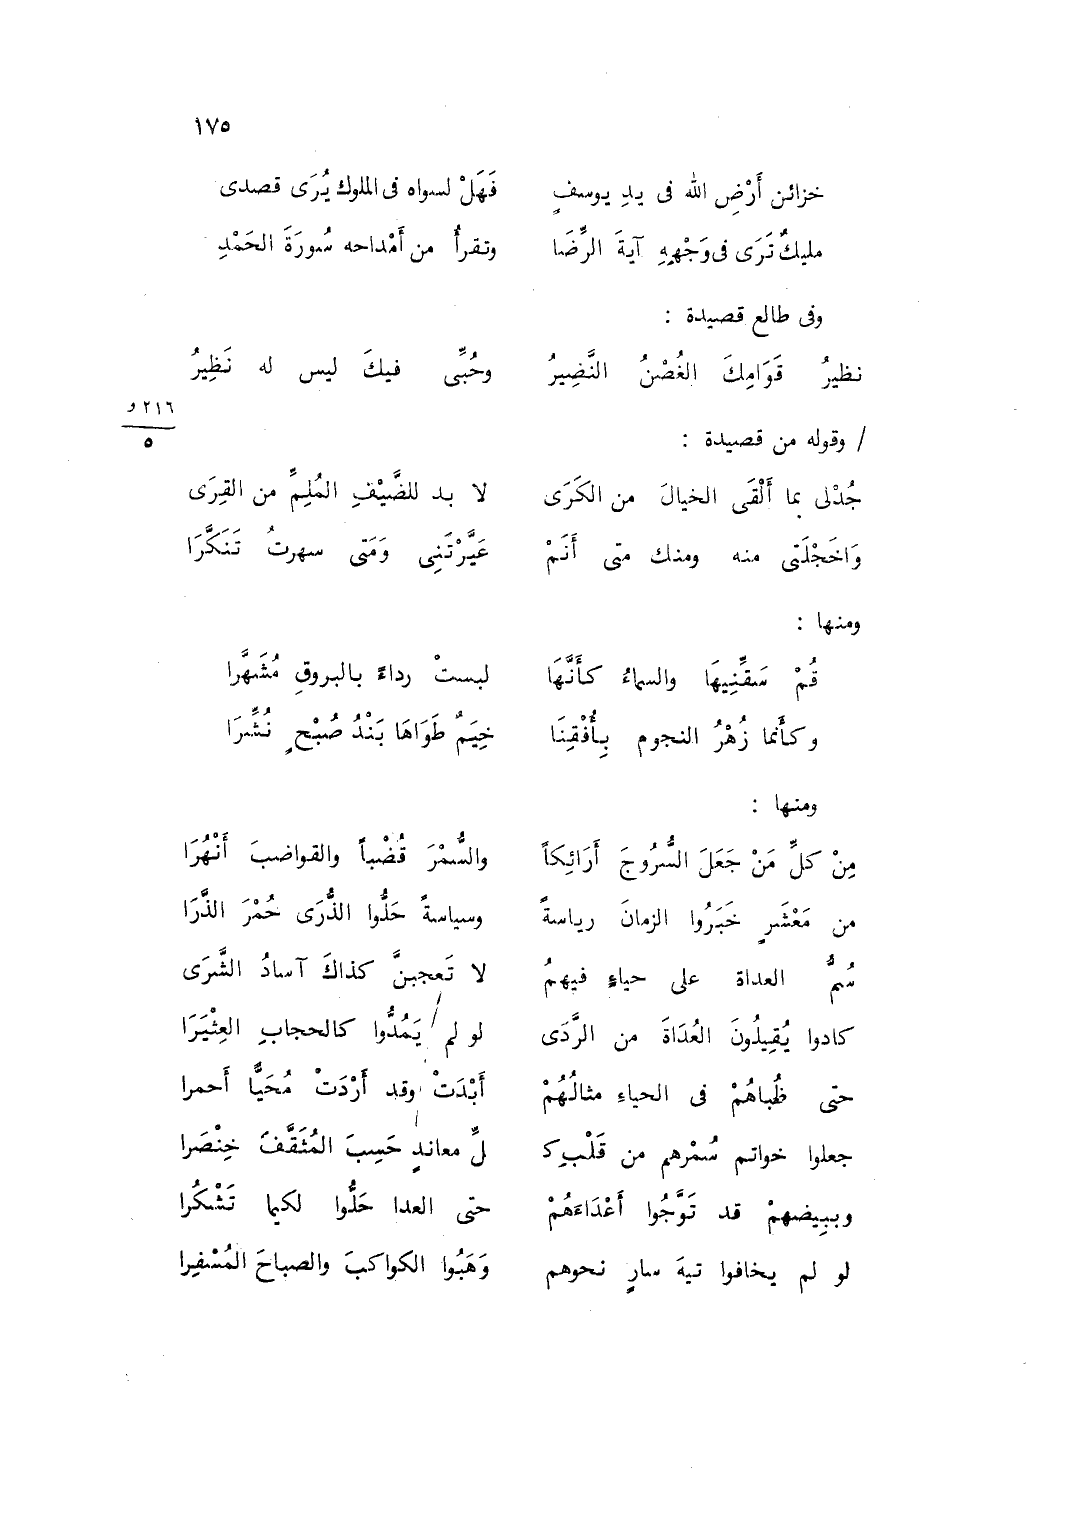 ١٧٥
خزائن أَرْضِ اللّٰه فى يدِ يوسفٍ فَهَلْ لسواه فى الملوك يُرَى قصدى
مليكٌ تَرَى فى وَجْهِهِ آيةَ الرِّضَا وتقرأُ من أَمْداحه سُورَةَ الحَمْدِ
وفى طالع قصيدة :
نظيرُ قَوَامِكَ الغُصْنُ النَّضِيرُ وحُبِّى فيكَ ليس له نَظِيرُ
٢١٦ و
٥
/ وقوله من قصيدة :
جُدْلى بما أَلْقَى الخيالَ من الكَرَى لا بد للضَّيْفِ المُلِمِّ من القِرَى
وَاخَجْلَتى منه ومنك متى أَنَمْ عَيَّرْتَنِى وَمَتى سهرتُ تَنَكَّرَا
ومنها :
قُمْ سَقِّنِيهَا والسماءُ كأَنَّهَا لبستْ رداءً بالبروقِ مُشَهَّرا
وكأَنما زُهْرُ النجوم بِأُفْقِنَا خِيَمٌ طَوَاهَا بَنْدُ صُبْحٍ نُشِّرَا
ومنها :
مِنْ كلِّ مَنْ جَعَلَ السُّرُوجَ أَرَائِكاً والسُّمْرَ قُضْباً والقواضبَ أَنْهُرَا
من مَعْشَرٍ خَبَرُوا الزمانَ رياسةً وسياسةً حَلُّوا الذُّرَى حُمْرَ الذَّرَا
سُمُّ العداة على حياءٍ فيهمُ لا تَعجبنَّ كذاكَ آسادُ الشَّرَى
كادوا يُقِيلُونَ العُدَاةَ من الرَّدَى لو لم يَمُدُّوا كالحجابِ العِثْيَرَا
حتى ظُباهُمْ فى الحياءِ مثالُهُمْ أَبْدَتْ وقد أَرْدَتْ مُحَيًّا أَحمرا
جعلوا خواتم سُمْرهم من قَلْبِ كـ لِّ معاندٍ حَسِبَ المُثَقَّفَ خِنْصَرا
وببِيضهمْ قد تَوَّجُوا أَعْدَاءَهُمْ حتى العدا حَلُّوا لكيما تَشْكُرا
لو لم يخافوا تيهَ سارٍ نحوهم وَهَبُوا الكواكبَ والصباحَ المُسْفِرا